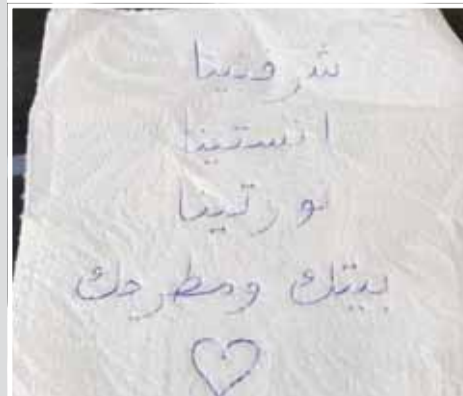 شرفتينا
انستينا
نورتينا
بيتك ومطرحك